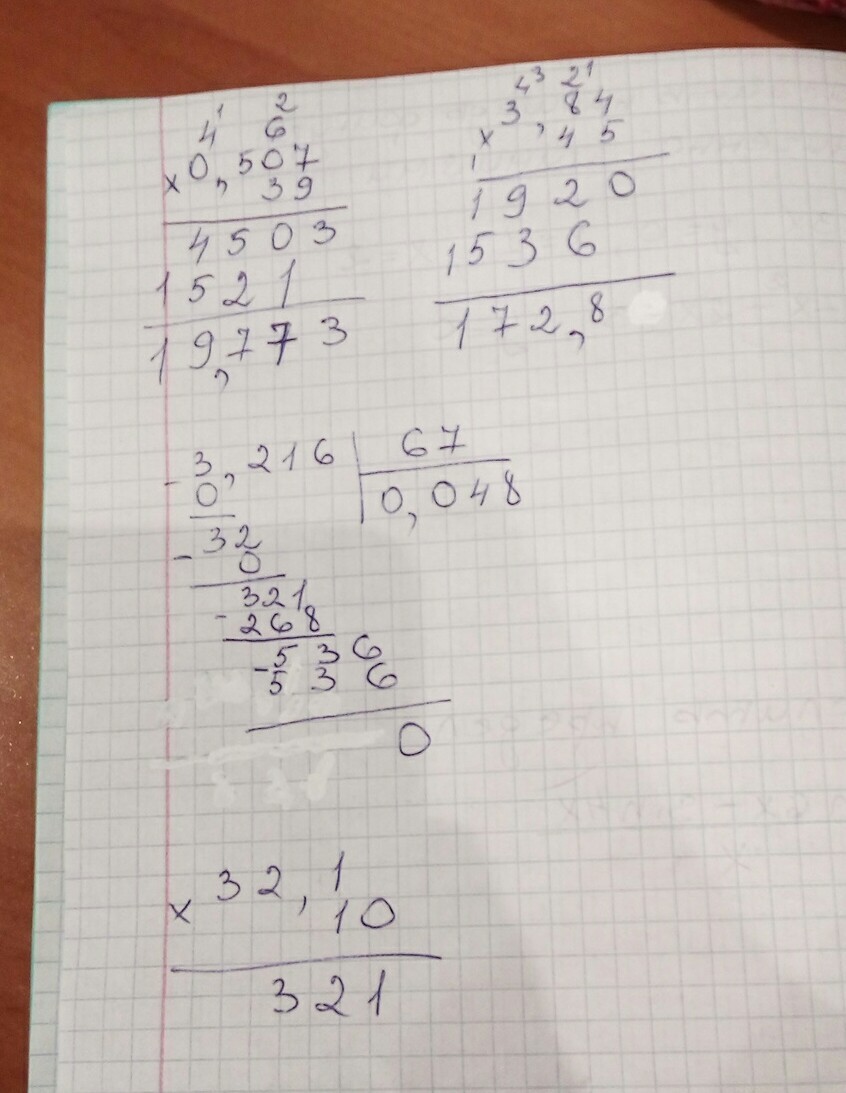 4¹ 6²
× 0,507
39
4503
1521
19,773
4³ 2¹
× 3,84
45
1920
1536
172,8
- 3,216 | 67
0 | 0,048
- 32
0
321
- 268
- 536
536
0
× 32,1
10
321